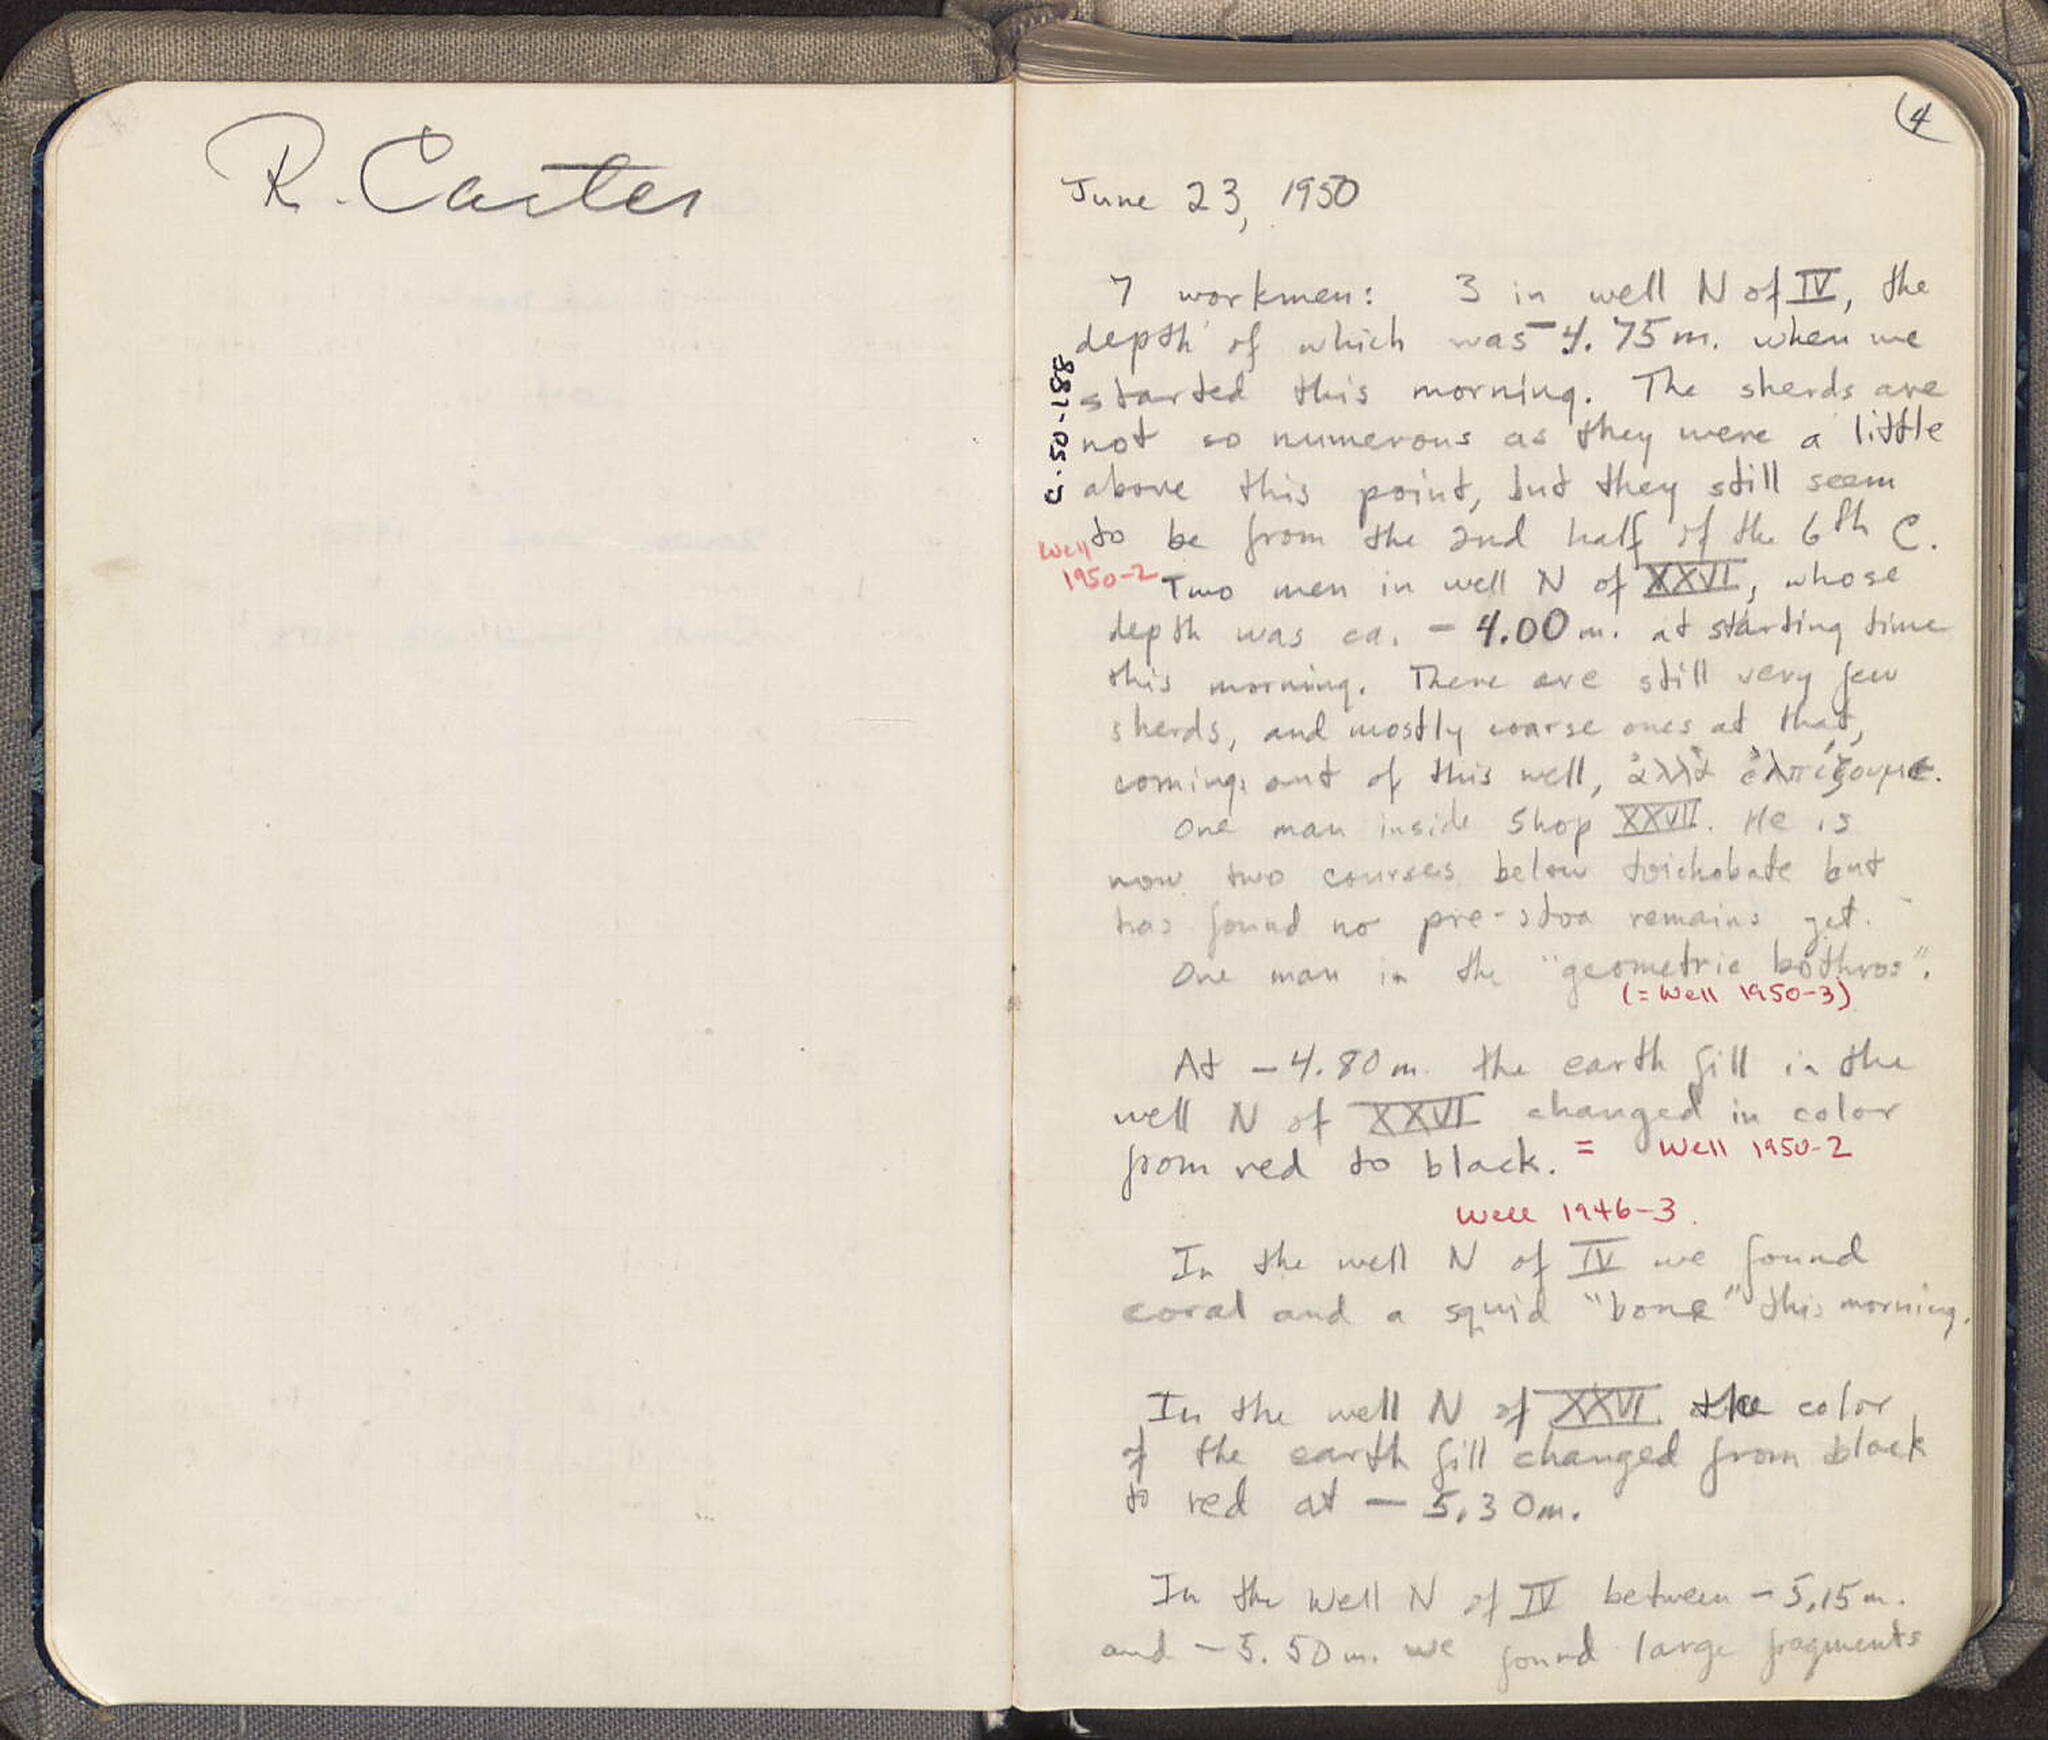 R. Carter
4
June 23, 1950
7 workmen: 3 in well N of IV, the
depth of which was -4.75 m. when we
started this morning. The sherds are
not so numerous as they were a little
above this point, but they still seem
to be from the 2nd half of the 6th C.
C-50-188
Well
1950-2
Two men in well N of XXVI, whose
depth was ca. - 4.00 m. at starting time
this morning. There are still very few
sherds, and mostly coarse ones at that,
coming out of this well, ἀλλὰ ἐλπίζουμε.
One man inside Shop XXVII. He is
now two courses below toichobate but
has found no pre-stoa remains yet.
One man in the "geometric bothros".
(= Well 1950-3)
At - 4.80 m. the earth fill in the
well N of XXVI changed in color
from red to black. = Well 1950-2
Well 1946-3.
In the well N of IV we found
coral and a squid "bone" this morning.
In the well N of XXVI the color
of the earth fill changed from black
to red at - 5.30m.
In the Well N of IV between - 5.15 m.
and - 5.50 m. we found large fragments